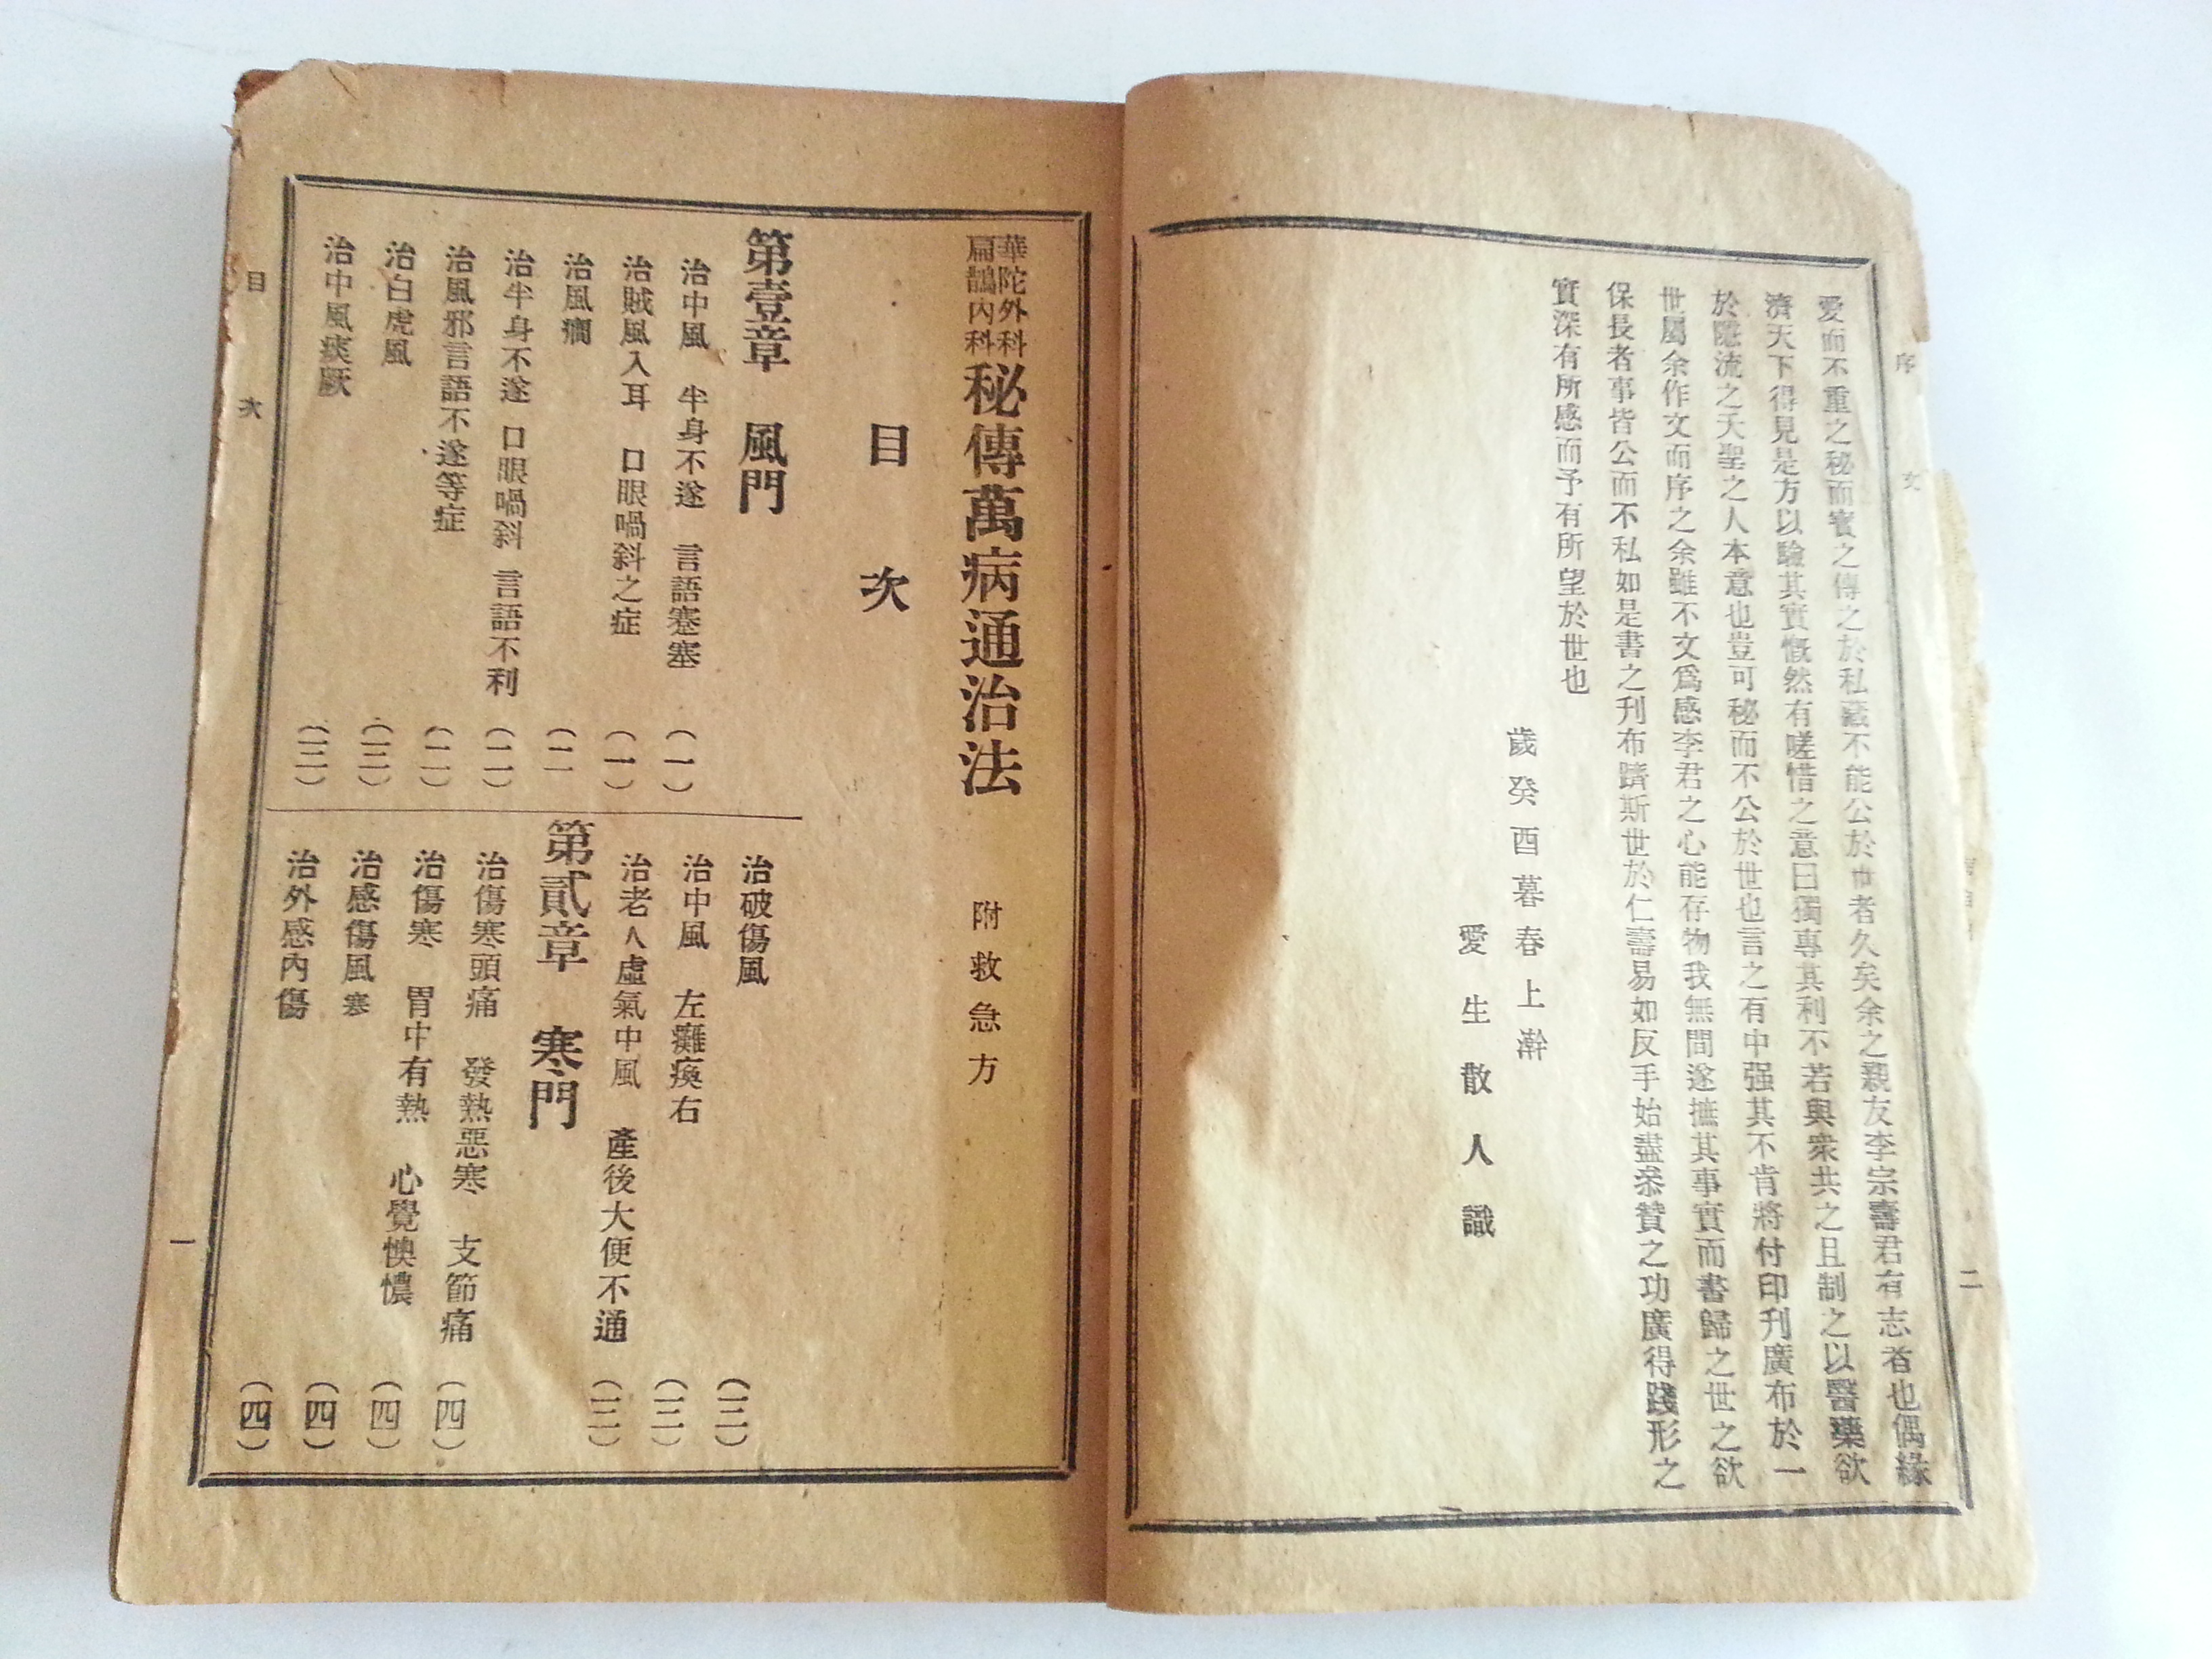 序文
二
愛而不重之秘而實之傳之於私藏不能公於世者久矣余之親友李宗壽君有志者也偶緣
濟天下得見是方以驗其實慨然有嗟惜之意曰獨專其利不若與衆共之且制之以醫藥欲
於隱流之天聖之人本意也豈可秘而不公於世也言之有中强其不肯將付印刊廣布於一
世屬余作文而序之余雖不文爲感李君之心能存物我無間遂摭其事實而書歸之世之欲
保長者事皆公而不私如是書之刊布躋斯世於仁壽易如反手始盡叅贊之功廣得踐形之
實深有所感而予有所望於世也
歲癸酉暮春上澣
愛生散人識
華陀外科
扁鵲內科
秘傳萬病通治法 附救急方
目次
第壹章 風門
治中風 半身不遂 言語蹇塞 (一)
治賊風入耳 口眼喎斜之症 (一)
治風癎 (二
治半身不遂 口眼喎斜 言語不利 (二)
治風邪言語不遂等症 (二)
治白虎風 (三)
治中風痰厥 (三)
治破傷風 (三)
治中風 左癱瘓右 (三)
治老人虛氣中風 產後大便不通 (三)
第貳章 寒門
治傷寒頭痛 發熱惡寒 支節痛 (四)
治傷寒 胃中有熱 心覺懊憹 (四)
治感傷風寒 (四)
治外感內傷 (四)
目次
一